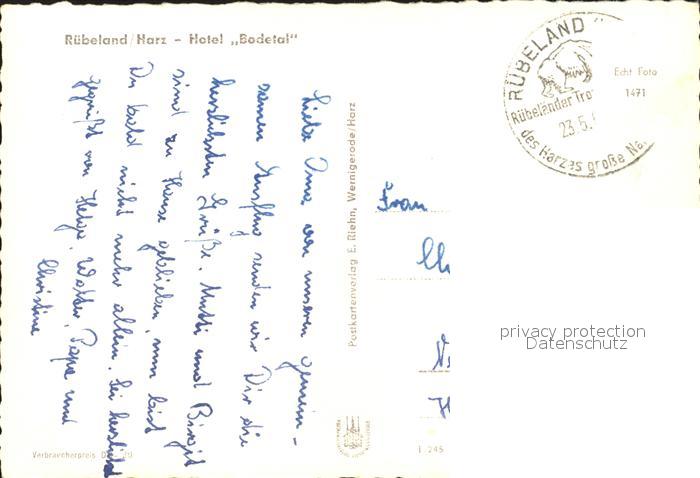 Rübeland/Harz - Hotel „Bodetal"
Liebe Oma, von unserem gemein-
samen Ausflug senden wir Dir die
herzlichsten Grüße. Mutti und Birgit
sind zu Hause geblieben, nun bist
Du bald nicht mehr allein. Sei herzlichst
gegrüßt von Helga, Walter, Papa und
Christine
Verbraucherpreis
Postkartenverlag E. Riehn, Wernigerode/Harz
RÜBELAND
Rübeländer Tro
23.5.
des Harzes große Na
Echt Foto
1471
Frau
I 245
privacy protection
Datenschutz